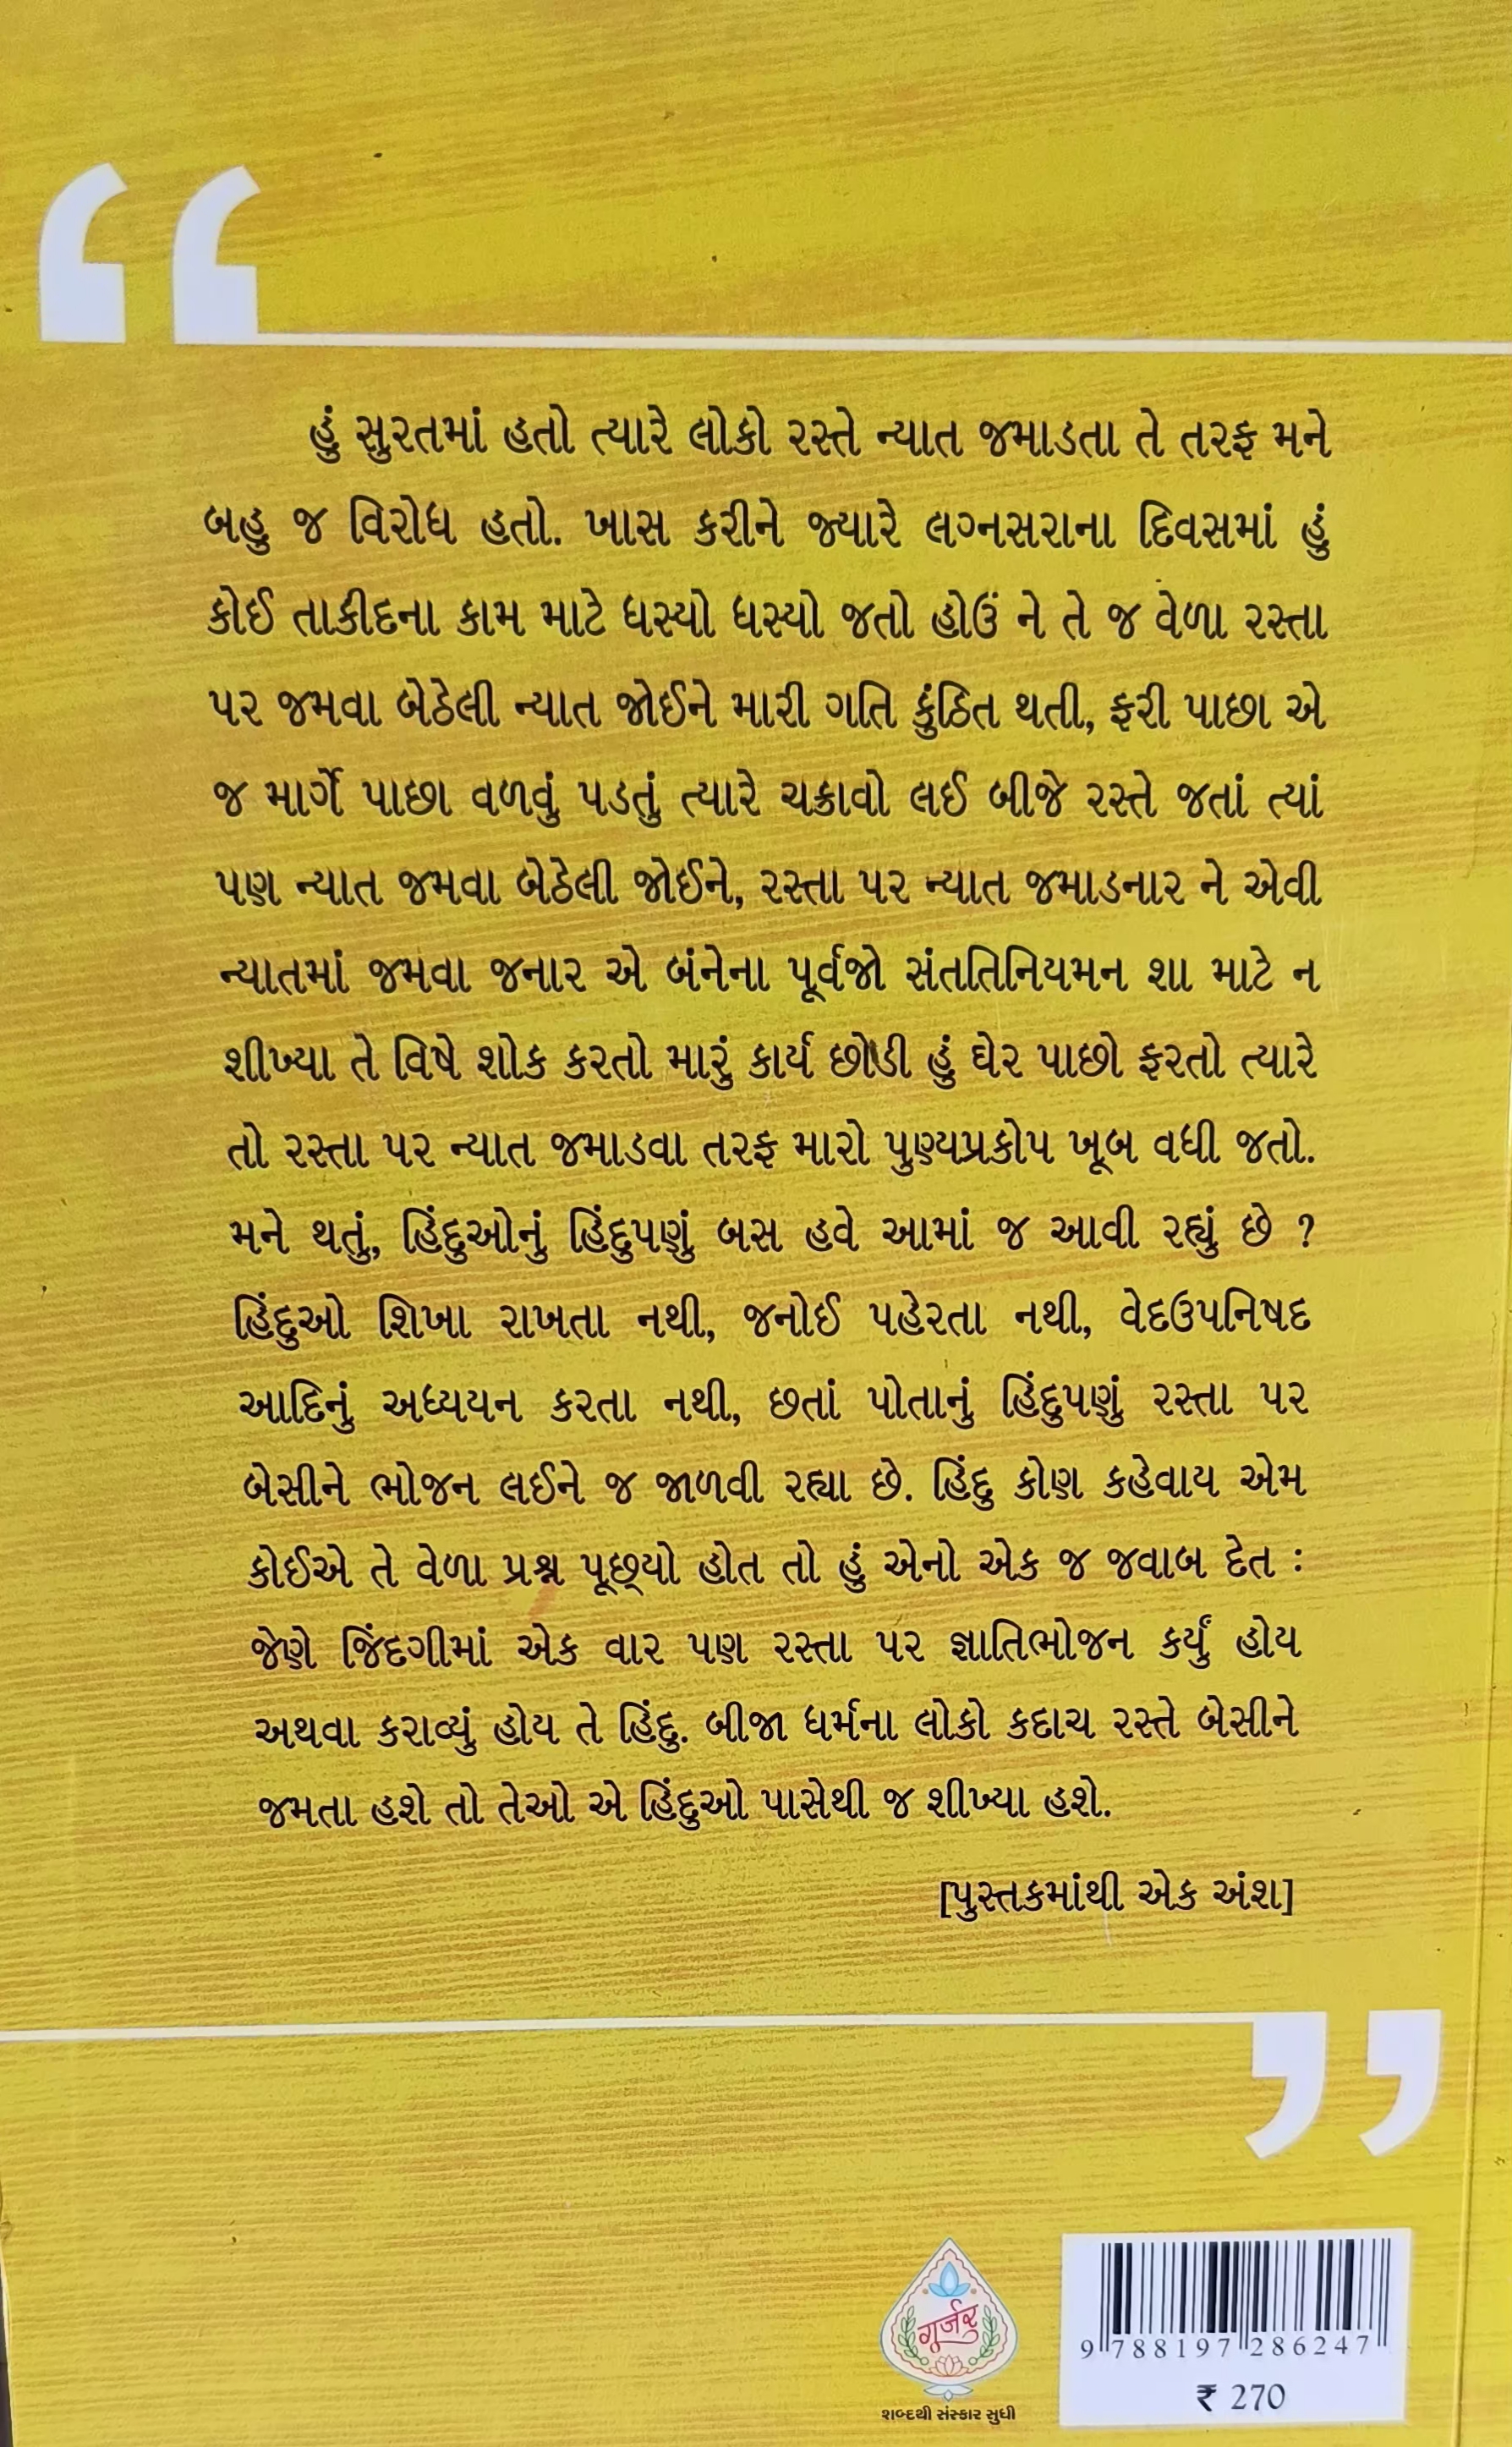 હું સુરતમાં હતો ત્યારે લોકો રસ્તે ન્યાત જમાડતા તે તરફ મને
બહુ જ વિરોધ હતો. ખાસ કરીને જ્યારે લગ્નસરાના દિવસમાં હું
કોઈ તાકીદના કામ માટે ધસ્યો ધસ્યો જતો હોઉં ને તે જ વેળા રસ્તા
પર જમવા બેઠેલી ન્યાત જોઈને મારી ગતિ કુંઠિત થતી, ફરી પાછા એ
જ માર્ગે પાછા વળવું પડતું ત્યારે ચક્રાવો લઈ બીજે રસ્તે જતાં ત્યાં
પણ ન્યાત જમવા બેઠેલી જોઈને, રસ્તા પર ન્યાત જમાડનાર ને એવી
ન્યાતમાં જમવા જનાર એ બંનેના પૂર્વજો સંતતિનિયમન શા માટે ન
શીખ્યા તે વિષે શોક કરતો મારું કાર્ય છોડી હું ઘેર પાછો ફરતો ત્યારે
તો રસ્તા પર ન્યાત જમાડવા તરફ મારો પુણ્યપ્રકોપ ખૂબ વધી જતો.
મને થતું, હિંદુઓનું હિંદુપણું બસ હવે આમાં જ આવી રહ્યું છે ?
હિંદુઓ શિખા રાખતા નથી, જનોઈ પહેરતા નથી, વેદઉપનિષદ
આદિનું અધ્યયન કરતા નથી, છતાં પોતાનું હિંદુપણું રસ્તા પર
બેસીને ભોજન લઈને જ જાળવી રહ્યા છે. હિંદુ કોણ કહેવાય એમ
કોઈએ તે વેળા પ્રશ્ન પૂછ્યો હોત તો હું એનો એક જ જવાબ દેત :
જેણે જિંદગીમાં એક વાર પણ રસ્તા પર જ્ઞાતિભોજન કર્યું હોય
અથવા કરાવ્યું હોય તે હિંદુ. બીજા ધર્મના લોકો કદાચ રસ્તે બેસીને
જમતા હશે તો તેઓ એ હિંદુઓ પાસેથી જ શીખ્યા હશે.
[પુસ્તકમાંથી એક અંશ]
ગૂર્જર
શબ્દથી સંસ્કાર સુધી
9 788197 286247
₹ 270